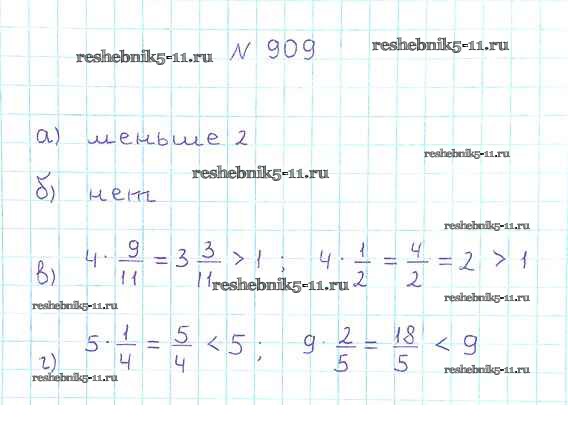 reshebnik5-11.ru N 909 reshebnik5-11.ru
а) меньше 2
reshebnik5-11.ru
reshebnik5-11.ru
б) нет
reshebnik5-11.ru
в) 4 · 9/11 = 3 3/11 > 1 ; 4 · 1/2 = 4/2 = 2 > 1
reshebnik5-11.ru
reshebnik5-11.ru reshebnik5-11.ru
г) 5 · 1/4 = 5/4 < 5 ; 9 · 2/5 = 18/5 < 9
reshebnik5-11.ru
reshebnik5-11.ru reshebnik5-11.ru